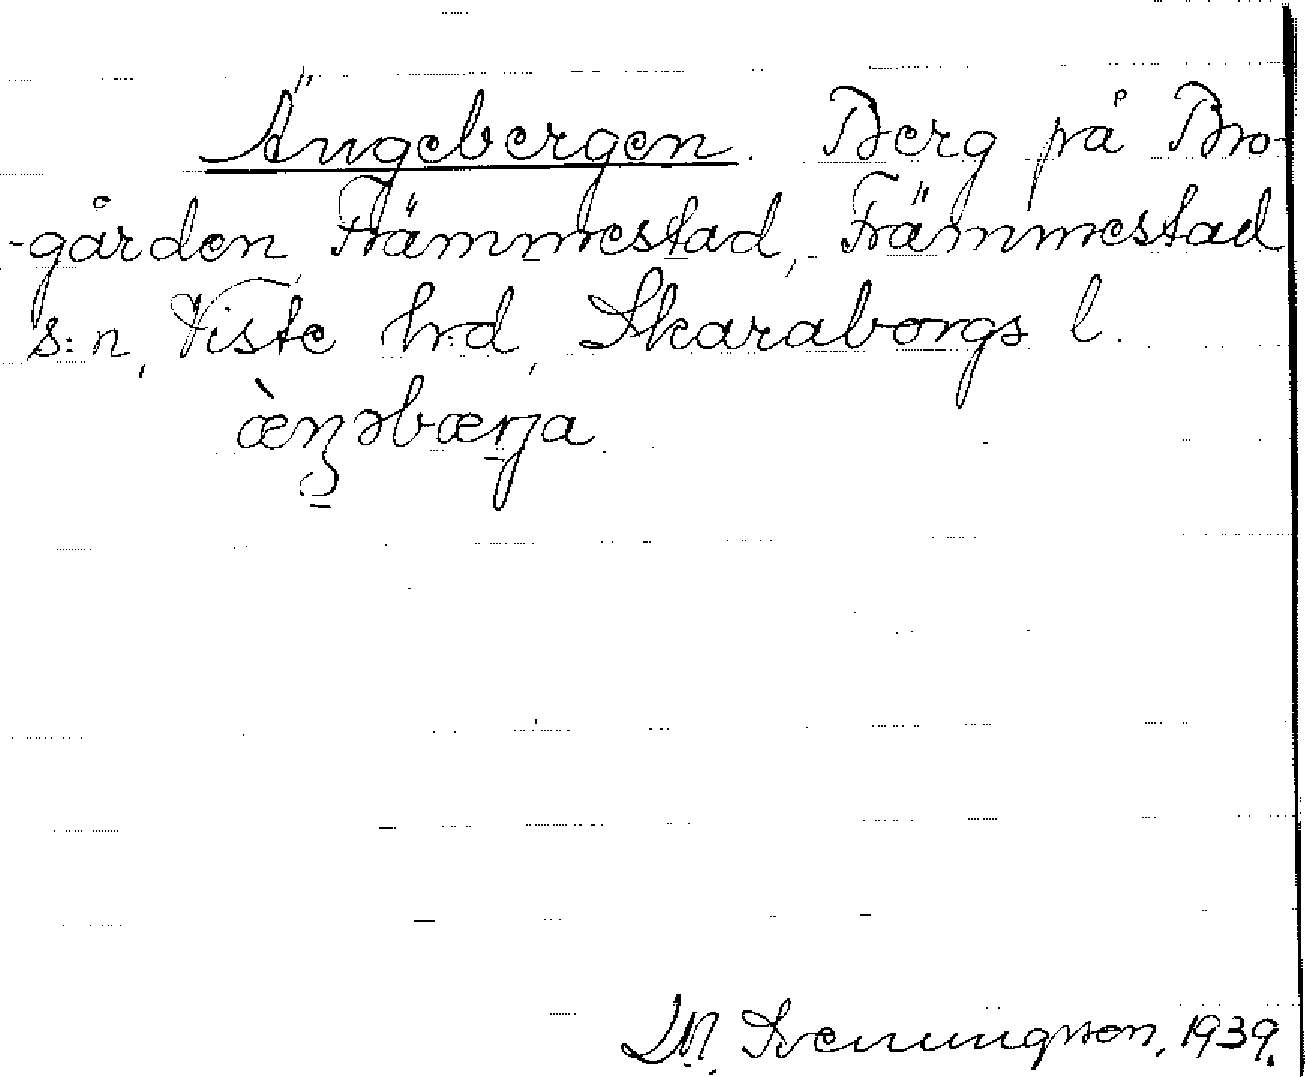 Ängebergen. Berg på Bro-
-gården, Främmestad, Främmestad
s:n, Viste h:d, Skaraborgs l.
æ̀ŋəbærja.
M. Svenningson, 1939.